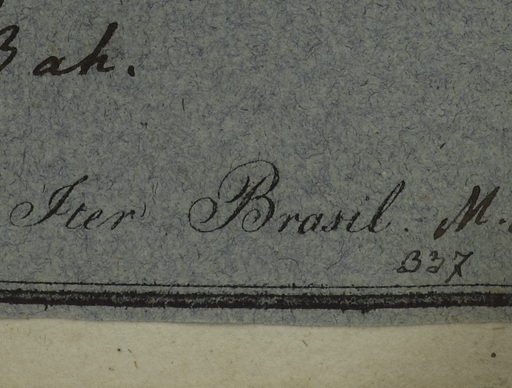 Bah.
Iter Brasil. M.
337